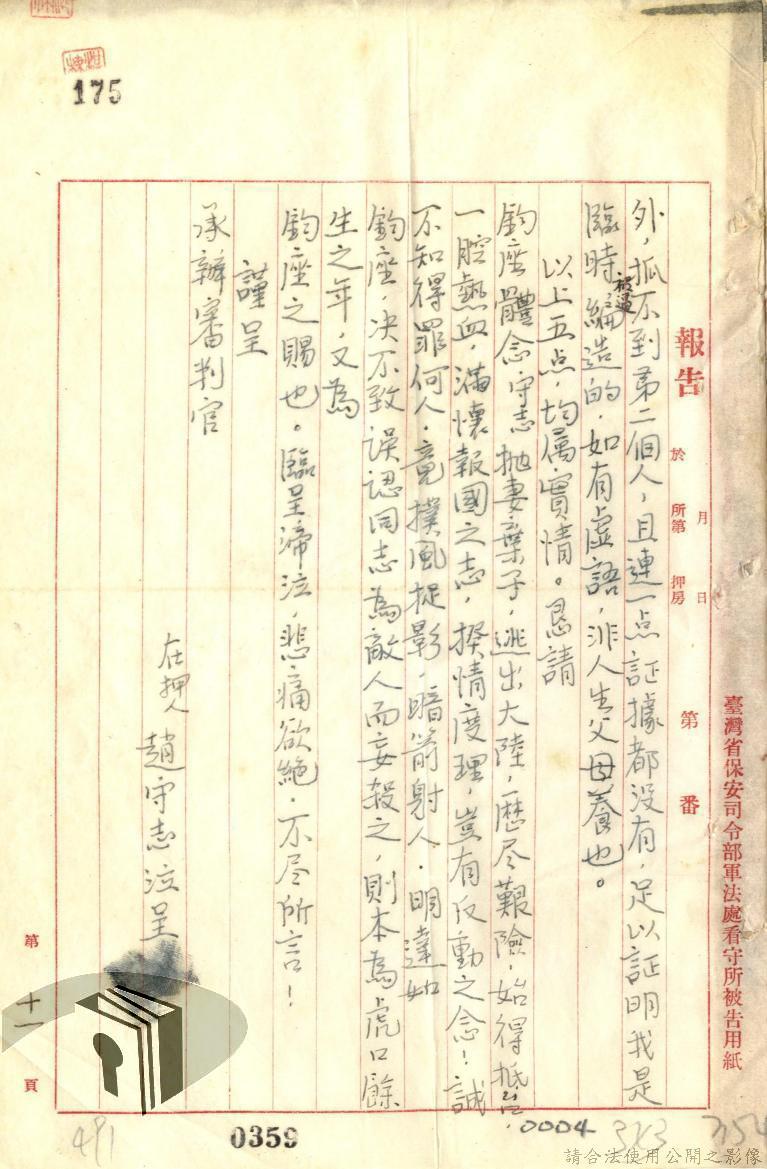 175
臺灣省保安司令部軍法處看守所被告用紙
報告
於
所第
押房
月
日
第
番
外，抓不到第二個人，且連一点証據都没有，足以証明我是
被逼
臨時編造的，如有虛語，非人生父母養也。
以上五点，均属實情。恳請
鈞座體念，守志抛妻棄子，逃出大陸，歷尽艱險，始得抵台，
一腔熱血，滿懷報國之志，揆情度理，豈有反動之念！誠
不知得罪何人，竟撲風捉影，暗箭射人．明達如
鈞座，决不致误認同志為敵人而妄殺之，則本為虎口餘
生之年，又為
鈞座之賜也。臨呈渧泣，悲痛欲絶．不尽所言！
謹呈
承辦審判官
在押人
趙守志泣呈
第
十一
頁
491
0359
0004
請合法使用公開之影像